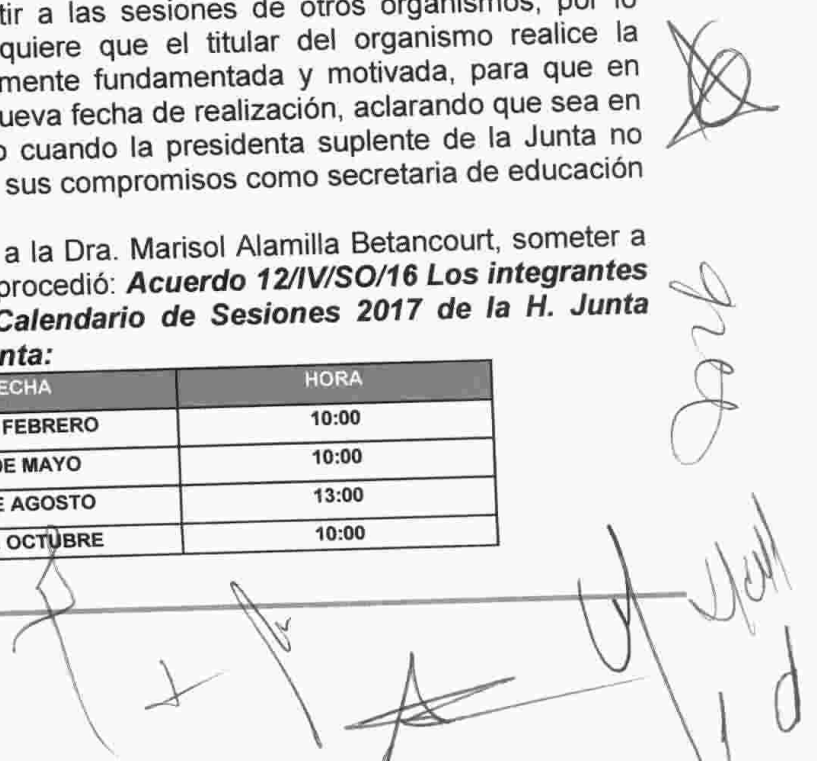 tir a las sesiones de otros organismos, por lo
quiere que el titular del organismo realice la
mente fundamentada y motivada, para que en
ueva fecha de realización, aclarando que sea en
o cuando la presidenta suplente de la Junta no
sus compromisos como secretaria de educación
a la Dra. Marisol Alamilla Betancourt, someter a
procedió: Acuerdo 12/IV/SO/16 Los integrantes
Calendario de Sesiones 2017 de la H. Junta
nta:
ECHA HORA
FEBRERO 10:00
DE MAYO 10:00
E AGOSTO 13:00
OCTUBRE 10:00